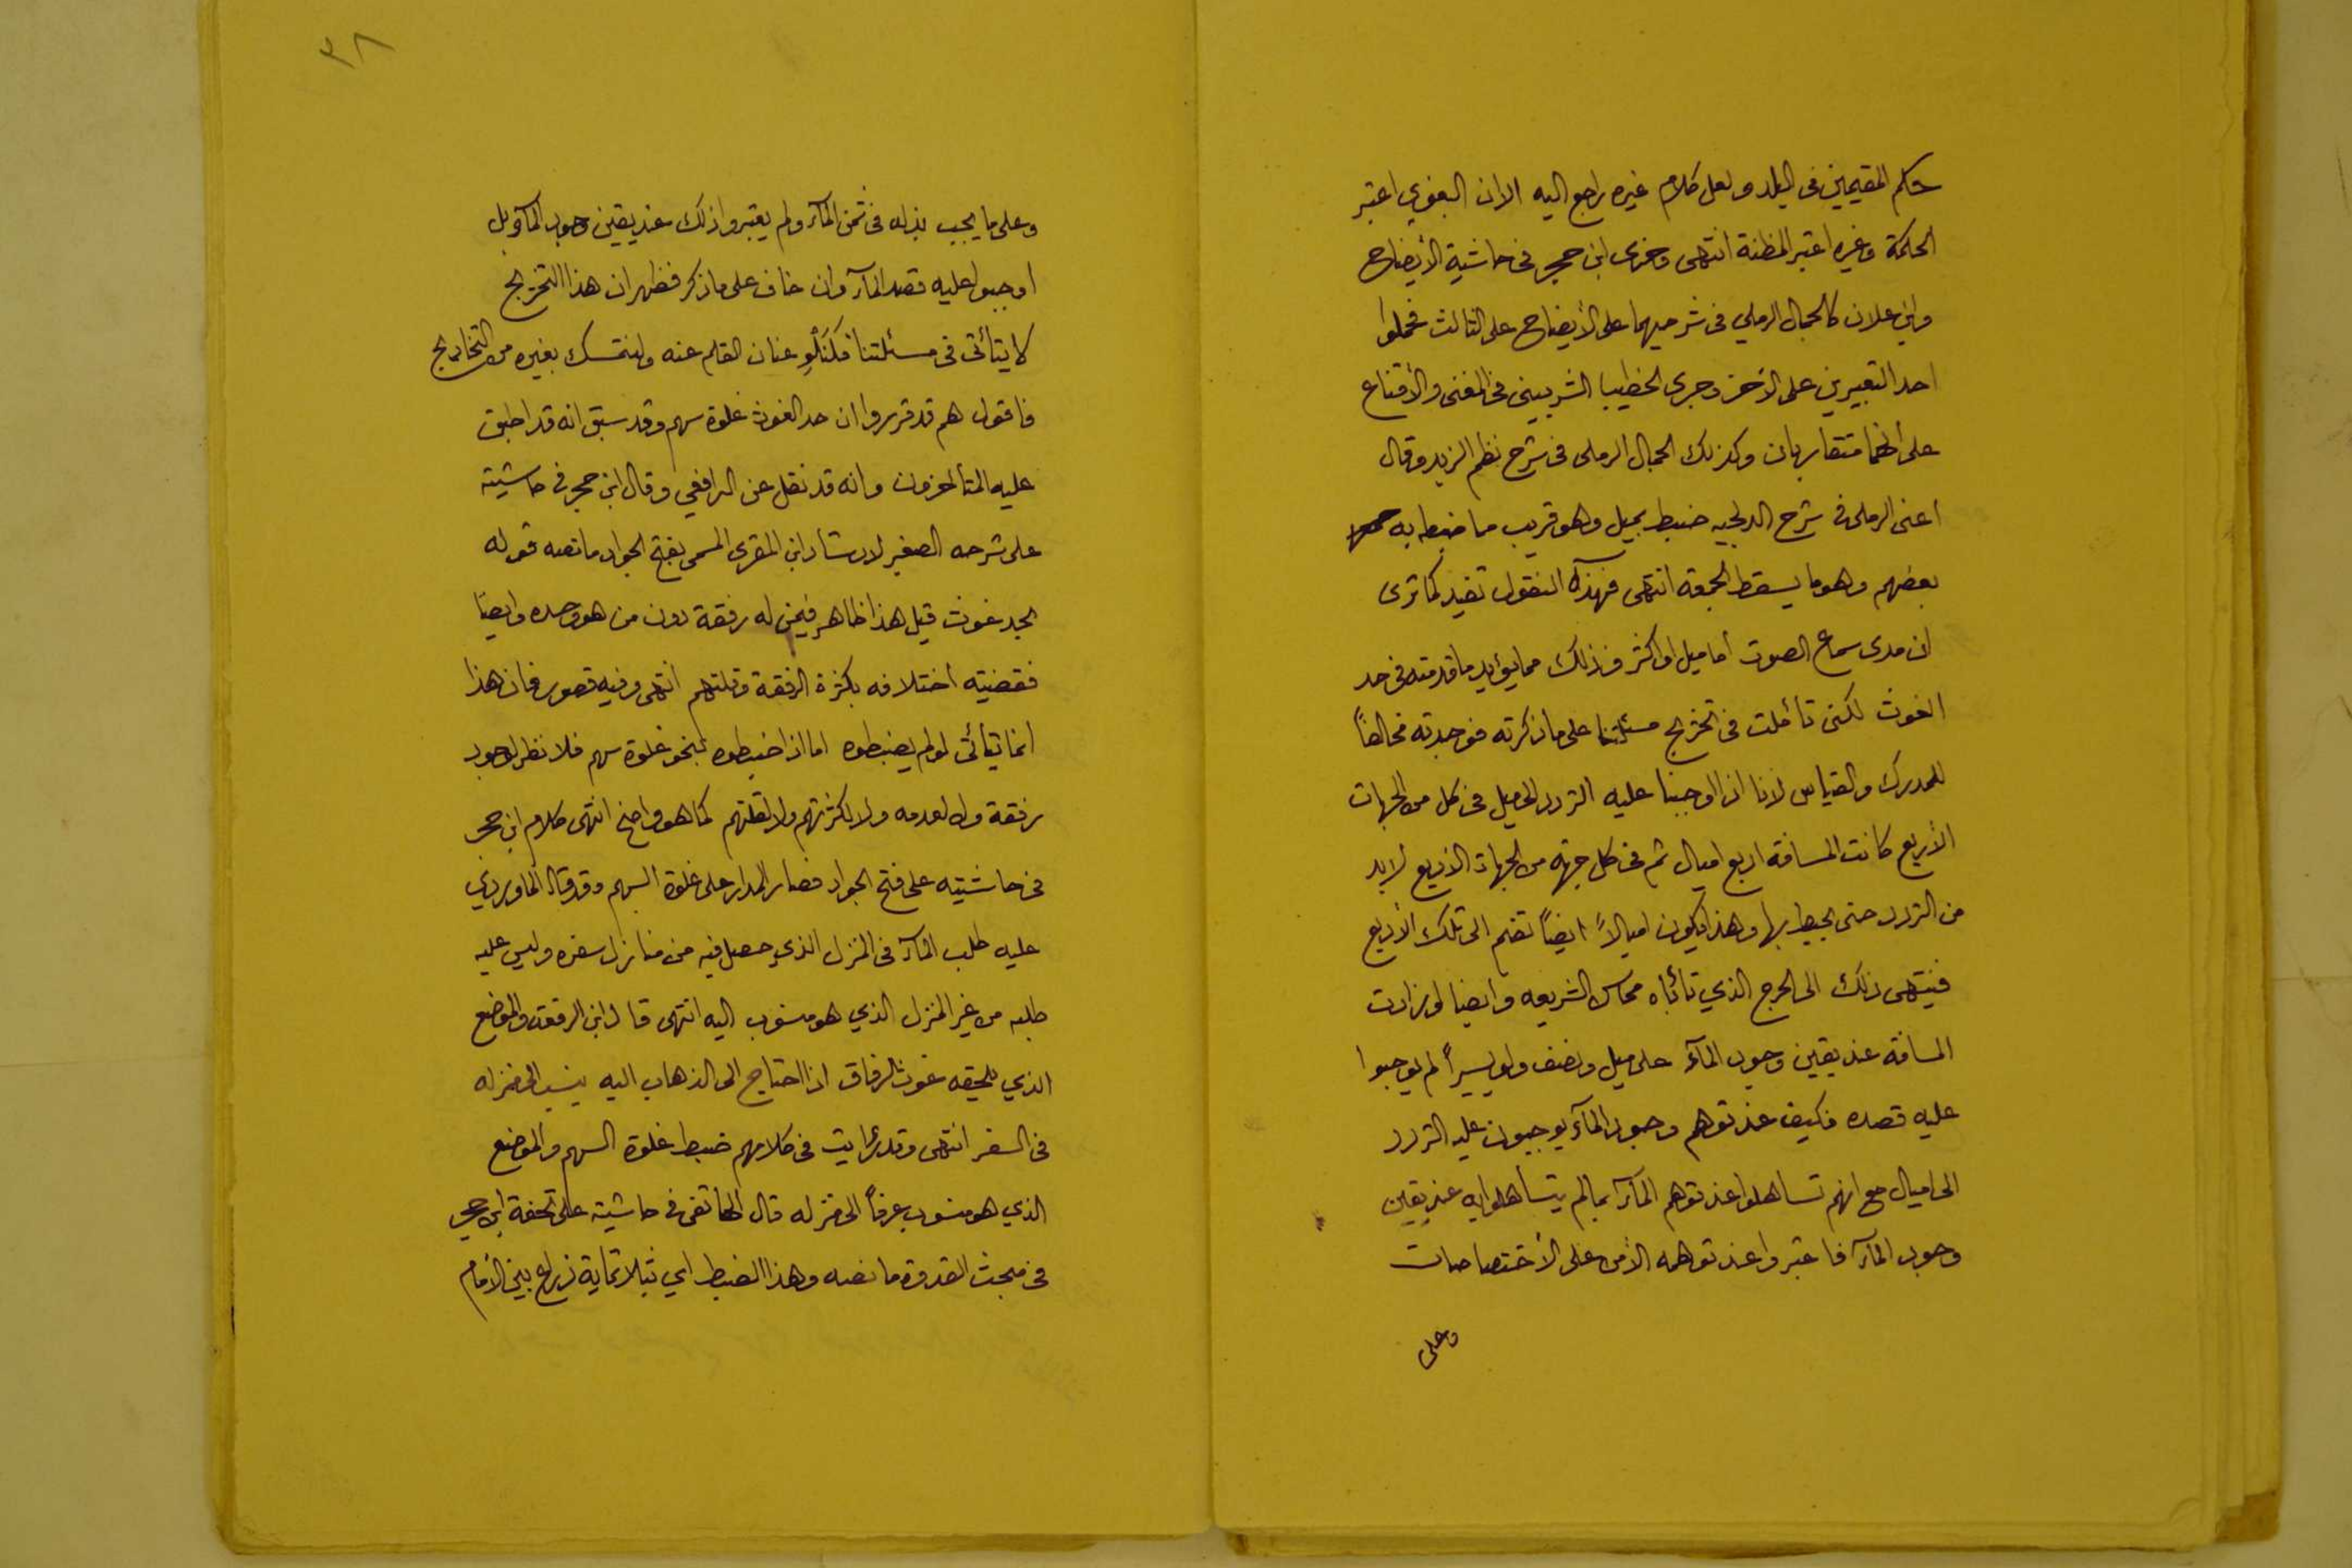 حكم المقيمين فى البلد ولعل كلام غيره راجع اليه الا ان البغوي اعتبر
الحكمة وغيره اعتبر المظنة انتهى وجرى ابن حجر فى حاشية الأيضاح
وابن علان كالجمال الرملي فى شرحيهما على الأيضاح على الثالث فحملوا
احد التعبيرين على الآخر وجرى الخطيب الشربينى فى المغنى والأقناع
على أنهما متقاربان وكذلك الجمال الرملى فى شرح نظم الزبد وقال
أعنى الرملى فى شرح الدلجيه ضبط بميل وهو قريب مما ضبطه به
بعضهم وهو ما يسقط الجمعة انتهى فهذه النقول تفيد كما ترى
ان مدى سماع الصوت أما ميل او اكثر وذلك مما يؤيد ما قدمته فى حد
الغوث لكنى تأملت فى تخريج مسئلتنا على ما ذكرته فوجدته مخالفاً
للمدرك والقياس لانا اذا اوجبنا عليه التردد الى ميل فى كل من الجهات
الأربع كانت المسافة اربع اميال ثم فى كل جهة من الجهات الأربع لا بد
من التردد حتى يحيط بها وهذا يكون اميالاً ايضاً تضم الى تلك الأربع
فينتهى ذلك الى الحرج الذي تأباه محاسن الشريعه وايضا لو زادت
المسافة عند يقين وجود المآء على ميل ونصف ولو يسيراً لم يوجبوا
عليه قصده فكيف عند توهم وجود المآء يوجبون عليه التردد
الى اميال مع انهم تساهلوا عند توهم المآء بما لم يتسأهلوا به عند يقين
وجود المآء فاعتبروا عند توهمه الأمن على الأختصاصات
وعلى
٣٨
وعلى ما يجب بذله فى ثمن المآء ولم يعتبروا ذلك عند يقين وجود المآء بل
اوجبوا عليه قصد المآء وان خاف على ما ذكر فظهر ان هذا التخريج
لا يتأتى فى مسئلتنا فلنلو عنان القلم عنه ولنتمسك بغيره من التخاريج
فاقول هم قد قرروا ان حد الغوث غلوة سهم وقد سبق انه قد اطبق
عليه المتأخرون وانه قد نقل عن الرافعي وقال ابن حجر فى حاشيته
على شرحه الصغير لارشاد ابن المقري المسمى بفتح الجواد ما نصه قوله
لحد غوث قيل هذا ظاهر فيمن له رفقة دون من هو وحده وايضا
فقضيته أختلافه بكثرة الرفقة وقلتهم انتهى وفيه قصور فان هذا
انما يتأتى لو لم يضبطوه اما اذا ضبطوه بنحو غلوة سهم فلا نظر لوجود
رفقة ولا لعدمه ولا لكثرتهم ولا لقلتهم كما هو واضح انتهى كلام ابن حجر
فى حاشيته على فتح الجواد فصار المدار على غلوة السهم وقد قال الماوردي
عليه طلب المآء فى المنزل الذي حصل فيه من منازل سفره وليس عليه
طلبه من غير المنزل الذي هو منسوب اليه انتهى قال ابن الرفعة والموضع
الذي يلحقه غوث الرفاق اذا احتاج الى الذهاب اليه ينسب الى منزله
فى السفر انتهى وقد رأيت فى كلامهم ضبط غلوة السهم والموضع
الذي هو منسوب عرفاً الى منزله قال الهاتفى فى حاشيته على تحفة ابن حجر
فى مبحث القدوة ما نصه وهذا الضبط اي بثلاثماية ذراع بين الأمام